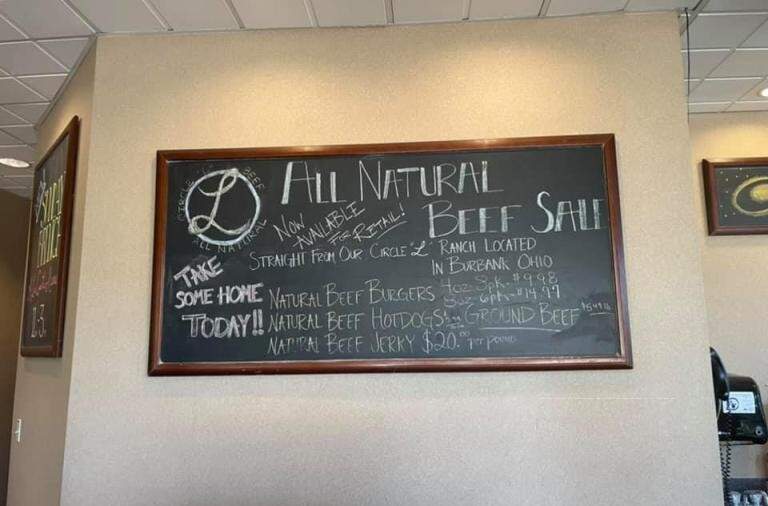 CIRCLE L BEEF
ALL NATURAL
ALL NATURAL
BEEF SALE
NOW
AVAILABLE
FOR RETAIL!
STRAIGHT FROM OUR CIRCLE "L" RANCH LOCATED
IN BURBANK OHIO
TAKE
SOME HOME
TODAY!!
NATURAL BEEF BURGERS 4oz 8pk - $9.98
8oz 6pk - $14.99
NATURAL BEEF HOTDOGS GROUND BEEF
NATURAL BEEF JERKY $20.00 per pound